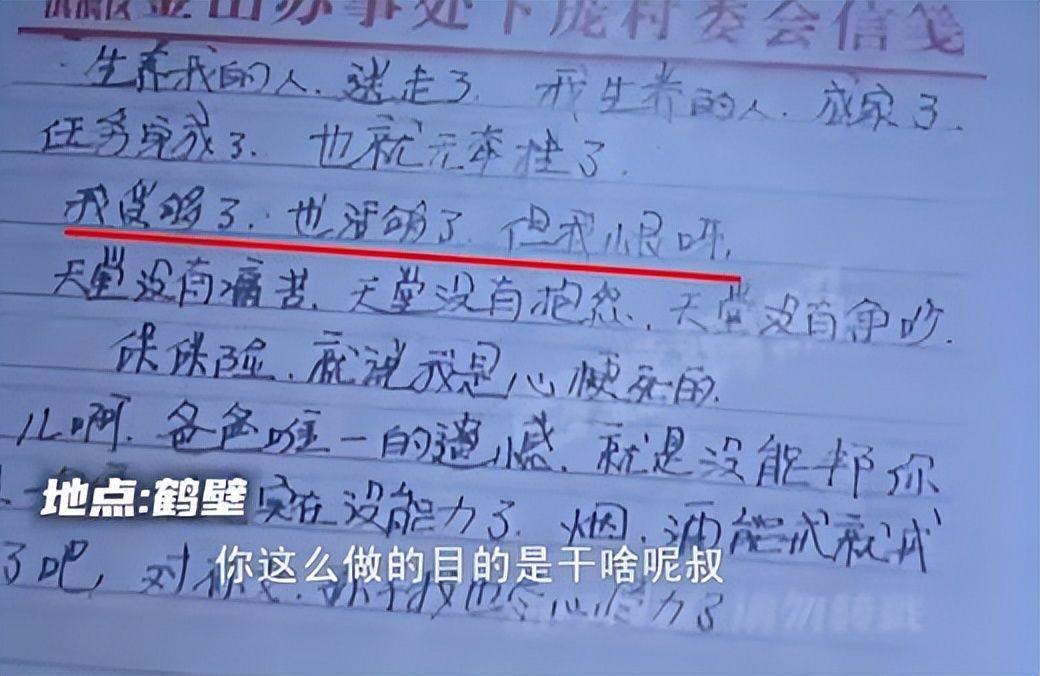 金山办事处下庞村委会信笺
生养我的人.送走了.我生养的人.成家了.
任务完成了.也就无牵挂了.
我受够了.也活够了.但我恨呀.
天堂没有痛苦.天堂没有抱怨.天堂没有争吵.
保保险.就说我是心梗死的.
儿啊.爸爸唯一的遗憾.就是没能帮你
实在没能力了.烟.酒能戒就戒
地点:鹤壁
了吧,对
你这么做的目的是干啥呢叔
尽心尽力了